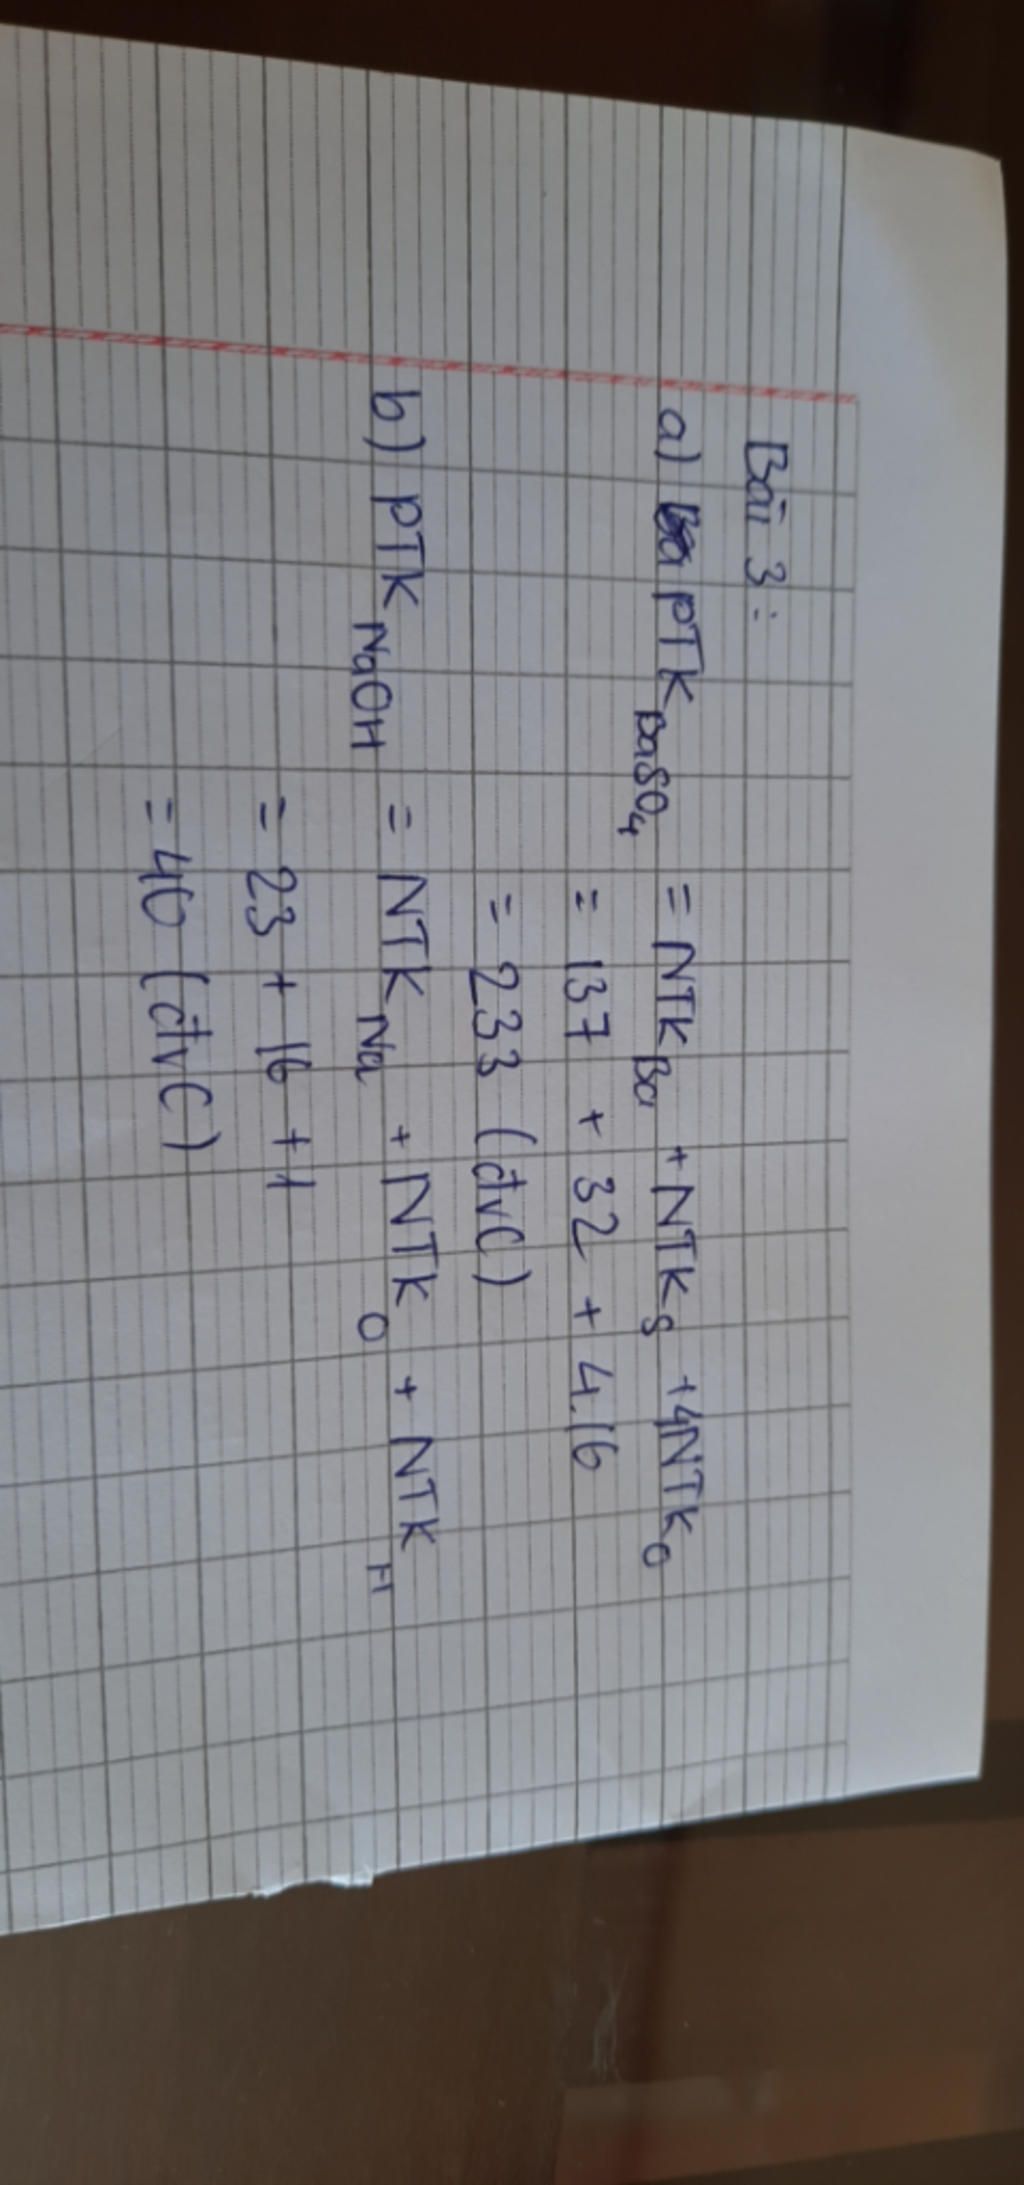 Bài 3:
a) PTK BaSO4 = NTK Ba + NTK S + 4NTK O
= 137 + 32 + 4.16
= 233 (đvC)
b) PTK NaOH = NTK Na + NTK O + NTK H
= 23 + 16 + 1
= 40 (đvC)